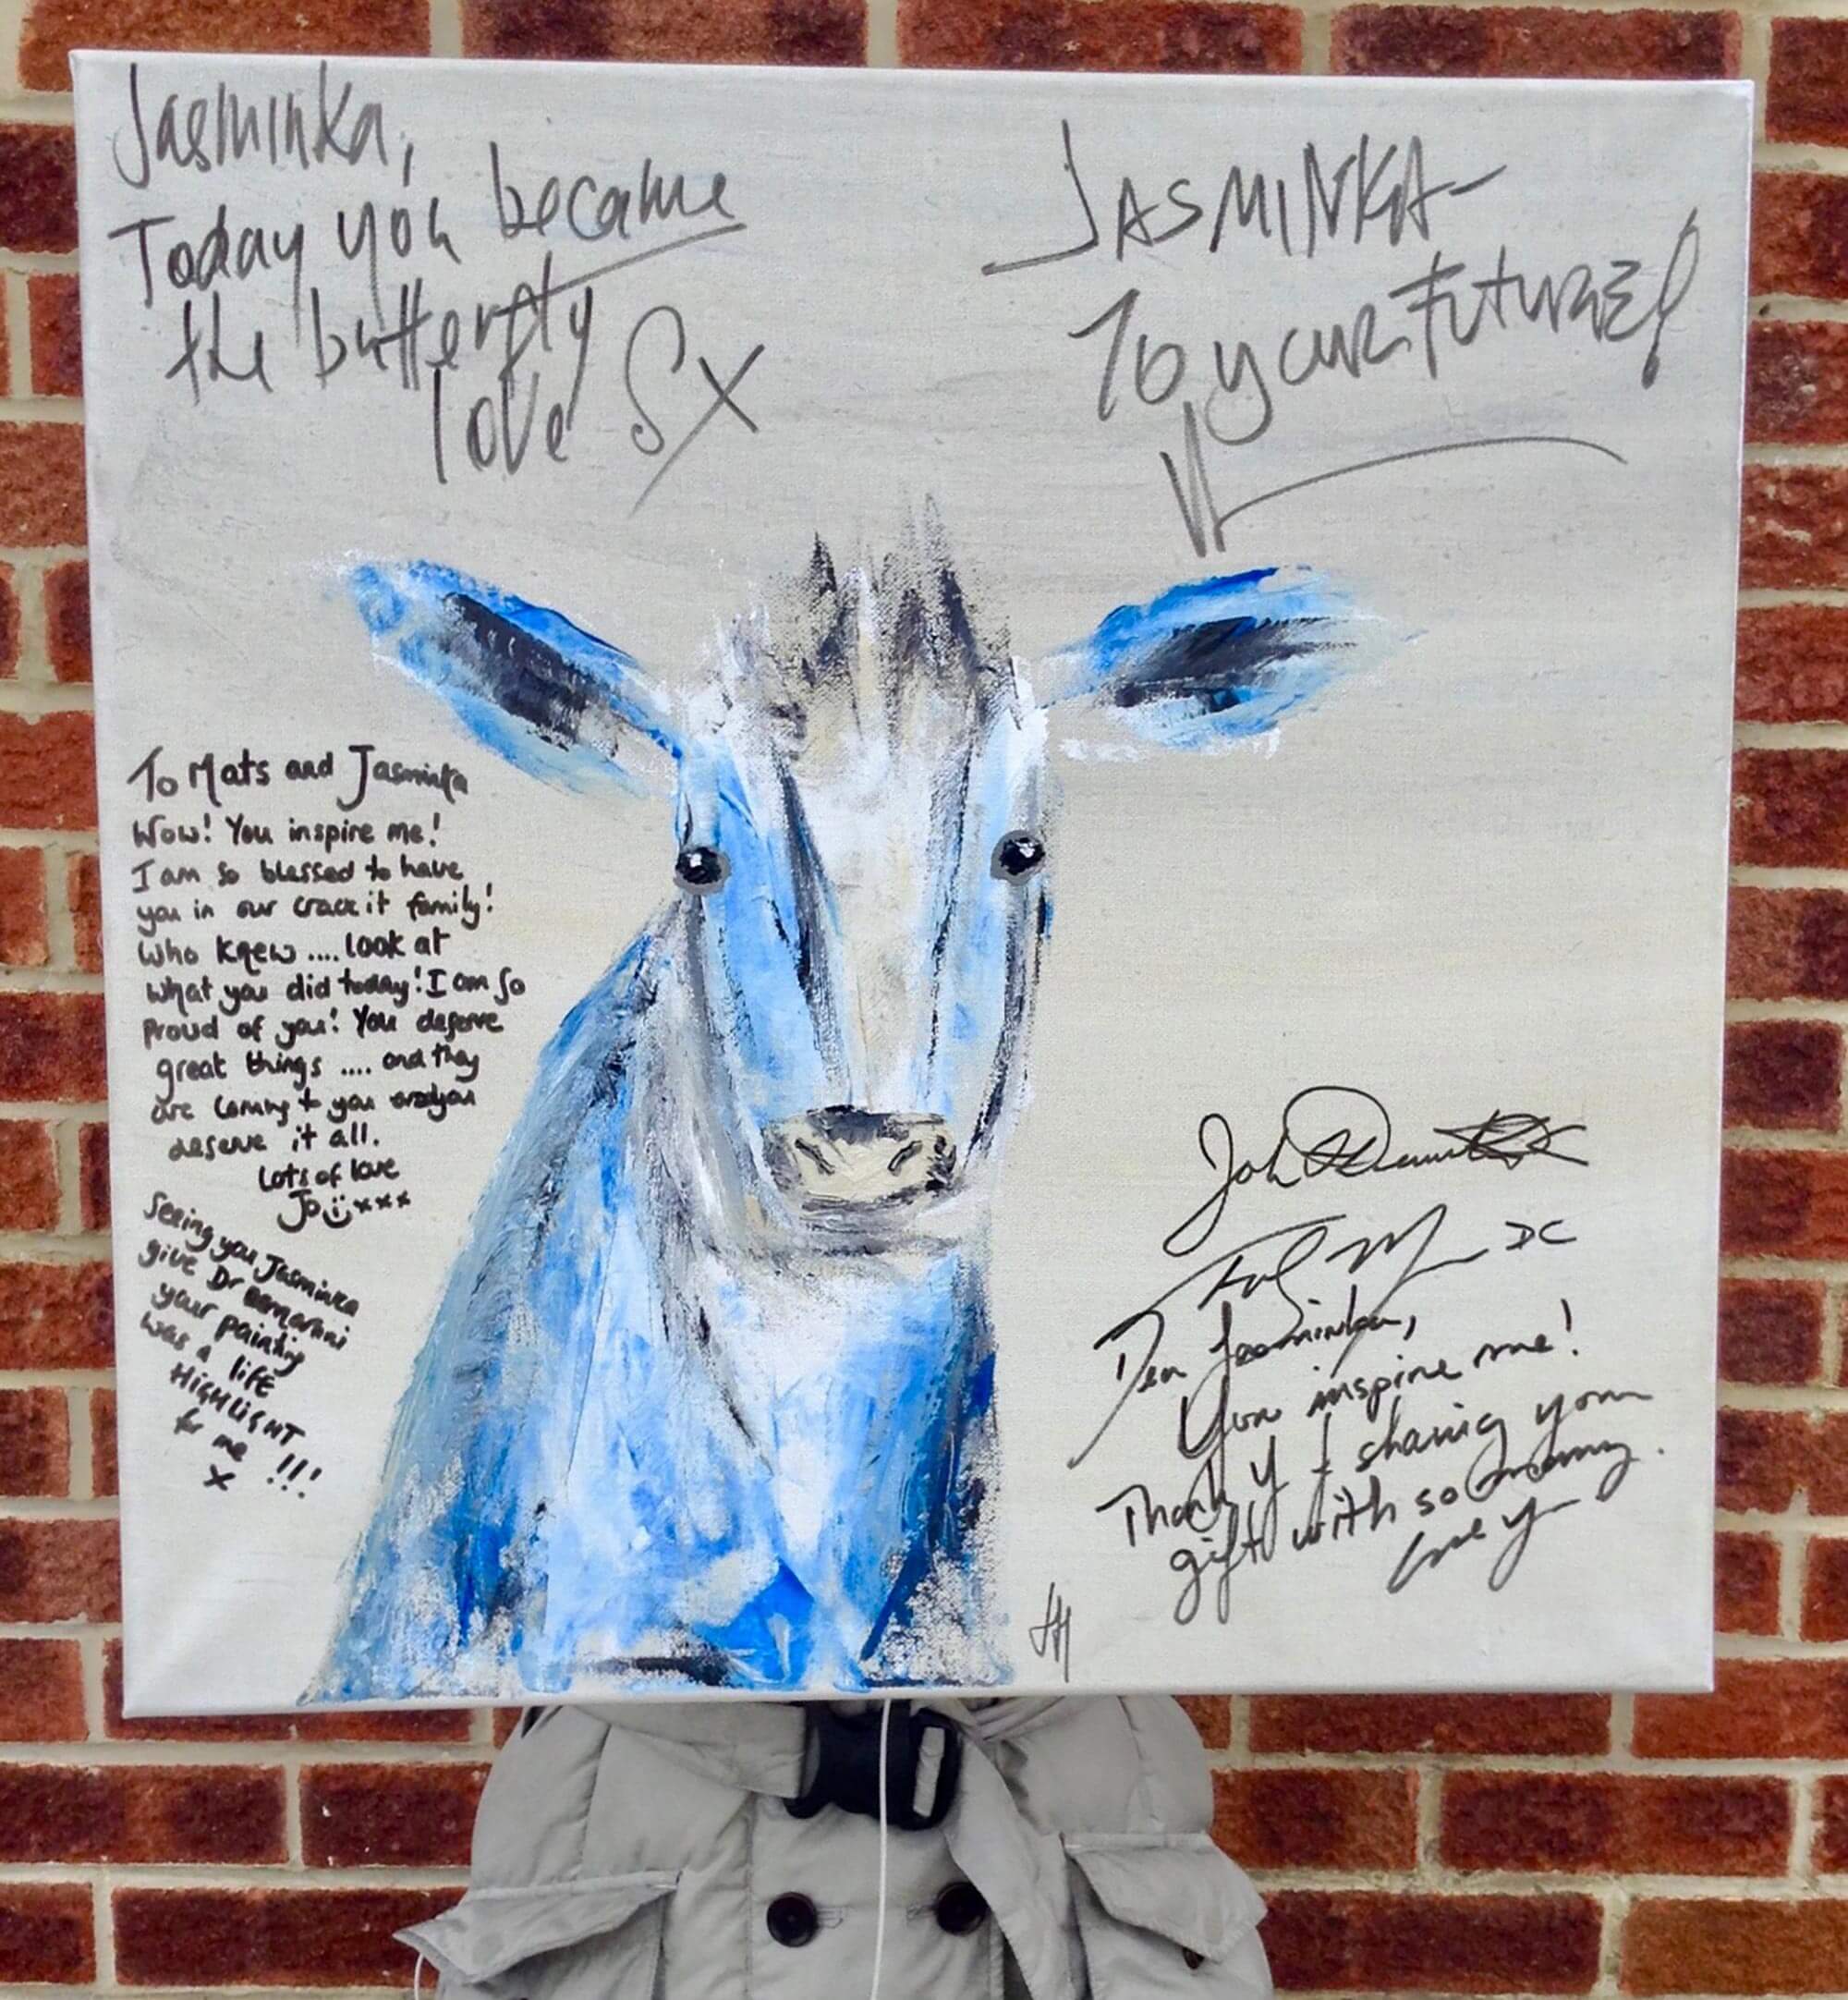 Jasminka,
Today you became
the butterfly
love Sx
JASMINKA-
To your FUTURE!
To Mats and Jasminka
Wow! You inspire me!
I am so blessed to have
you in our crack it family!
Who knew .... look at
what you did today! I am so
proud of you! You deserve
great things .... and they
are coming to you and you
deserve it all.
Lots of love
Jo xxx
Seeing you Jasminka
give Dr Demartini
your painting
was a life
HIGHLIGHT
for me !!!
x
John
DC
Dear Jasminka,
You inspire me!
Thank y f sharing your
gift with so many.
Love y
JH